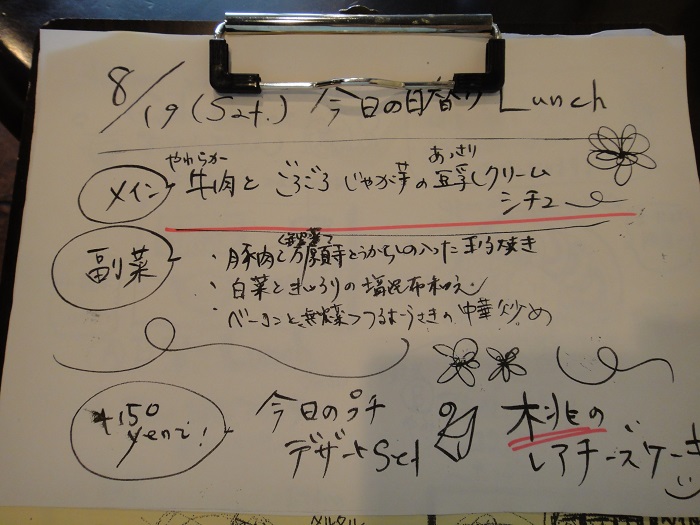 8/19 (Sat.) 今日の日替り Lunch
やわらか あっさり
メイン 牛肉と ごろごろ じゃが芋の 豆乳クリーム
シチュー
無農薬で
副菜 ・豚肉と万願寺とうがらしの入った玉子焼き
・白菜ときゅうりの塩昆布和え
・ベーコンと無農薬つるむらさきの中華炒め
+150 今日のプチ 桃の
yenで! デザートSet レアチーズケーキ